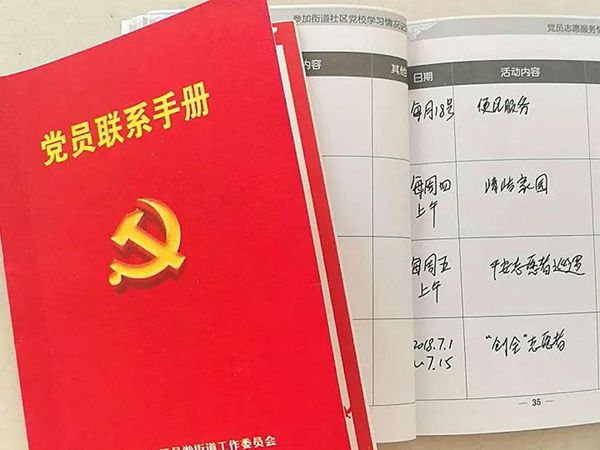 党员联系手册
街道工作委员会
参加街道社区党校学习情况
内容
其他
党员志愿服务情
日期
活动内容
每月18号
便民服务
每周四
上午
清洁家园
每周五
上午
平安志愿者巡逻
2018.7.1
~7.15
"创全"志愿者
— 35 —